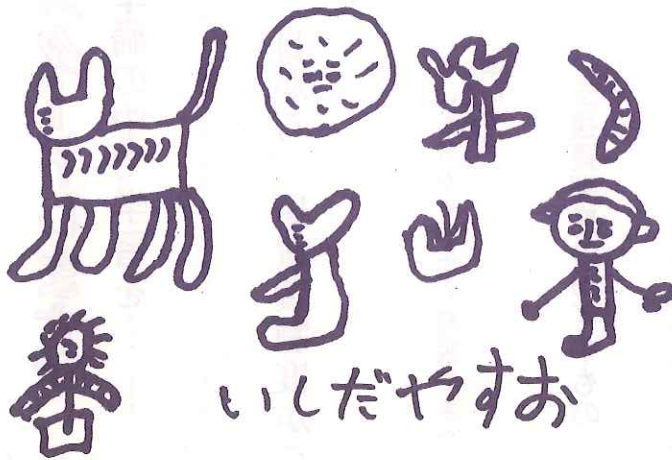 いしだやすお